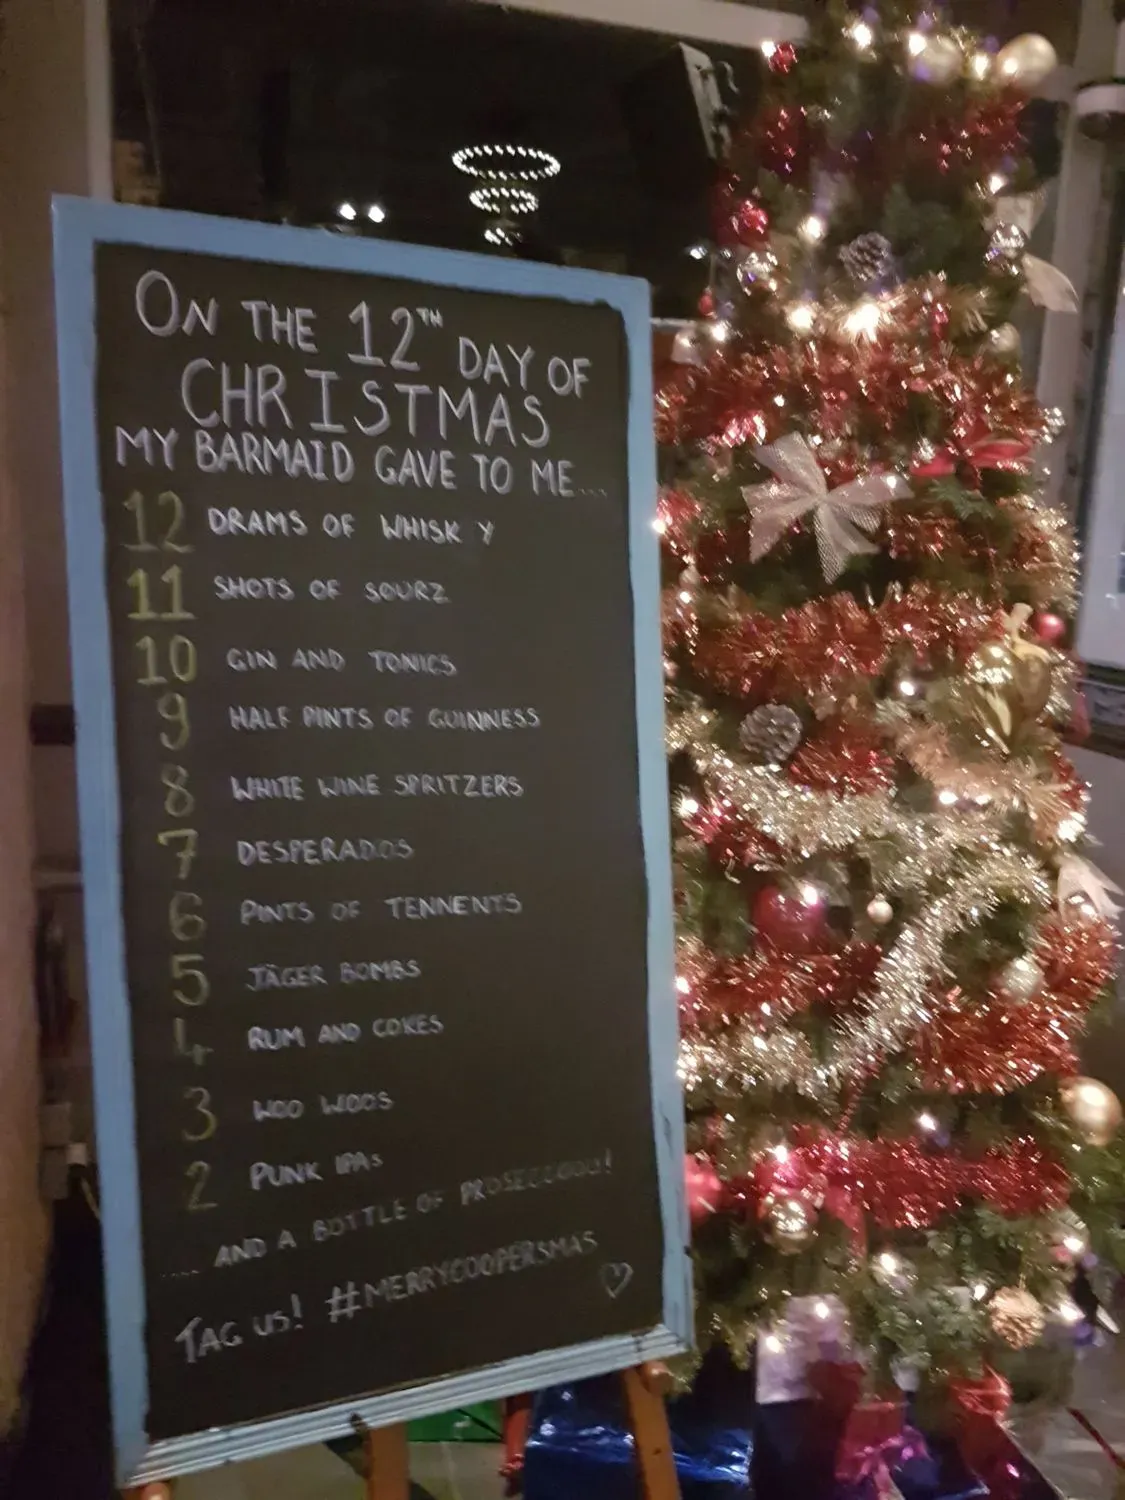 ON THE 12TH DAY OF
CHRISTMAS
MY BARMAID GAVE TO ME...
12 DRAMS OF WHISKY
11 SHOTS OF SOURZ
10 GIN AND TONICS
9 HALF PINTS OF GUINNESS
8 WHITE WINE SPRITZERS
7 DESPERADOS
6 PINTS OF TENNENTS
5 JÄGER BOMBS
4 RUM AND COKES
3 WOO WOOS
2 PUNK IPAs
.... AND A BOTTLE OF PROSECCOOO!
TAG US! #MERRYCOOPERSMAS